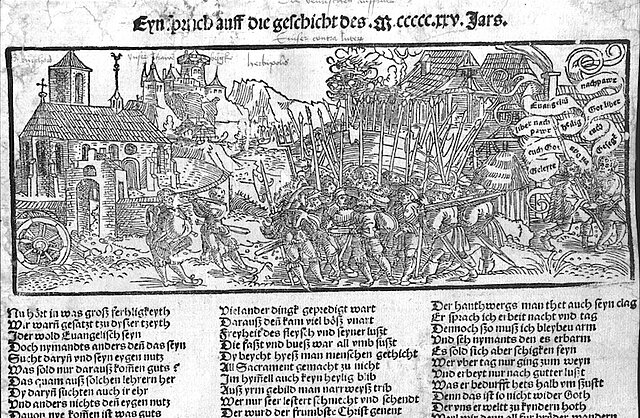 Eyn spruch auff die geschicht des. M.ccccc.xxv. Jars.
Emser contra
herbipolis
nachpawr
Evangeliū
Got lieber
lieber nach
pawr
euch Got
Gelerte
Nu hört in was groß ferligkeyth
Wir warn gesatzt zu dyser tzeyth
Jder wold Euangelisch seyn
Doch nymandts anders den das seyn
Sucht daryn vnd seyn eygen nutz
Was sold nur darauß komen guts
Das quam auß solchen lehrern her
Dy daryn suchten auch ir ehr
Vnd anders nichts den eygen nutz
Dauon nye komen ist was guts
Viel ander dingk gepredigt wart
Darauß den kam viel böß vnart
Freyheit des fleysch vnd seyner lust
Die fast vnd bueß war all vmb sust
Dy beycht hyeß man menschen gethicht
All Sacrament gemacht zu nicht
Im hymell auch keyn heylig blib
Auß yrm gebild man narrweyß trib
Wer nur seer lestert schmecht vnd schendt
Der wurd der frumbste Christ genent
Der hanthwergs man thet auch seyn clag
Er sprach ich erbeit nacht vnd tag
Dennoch sso muß ich bleyben arm
Vnd seh nymants den es erbarm
Es sold sich aber schigken seyn
Wer vber tag nur ging zum weyn
Vnd erbeyt nur nach gutter lust
Was er bedurfft hets halb vm sunst
Denn das ist so nicht wider Goth
Der vns erwelt zu kyndern hoth